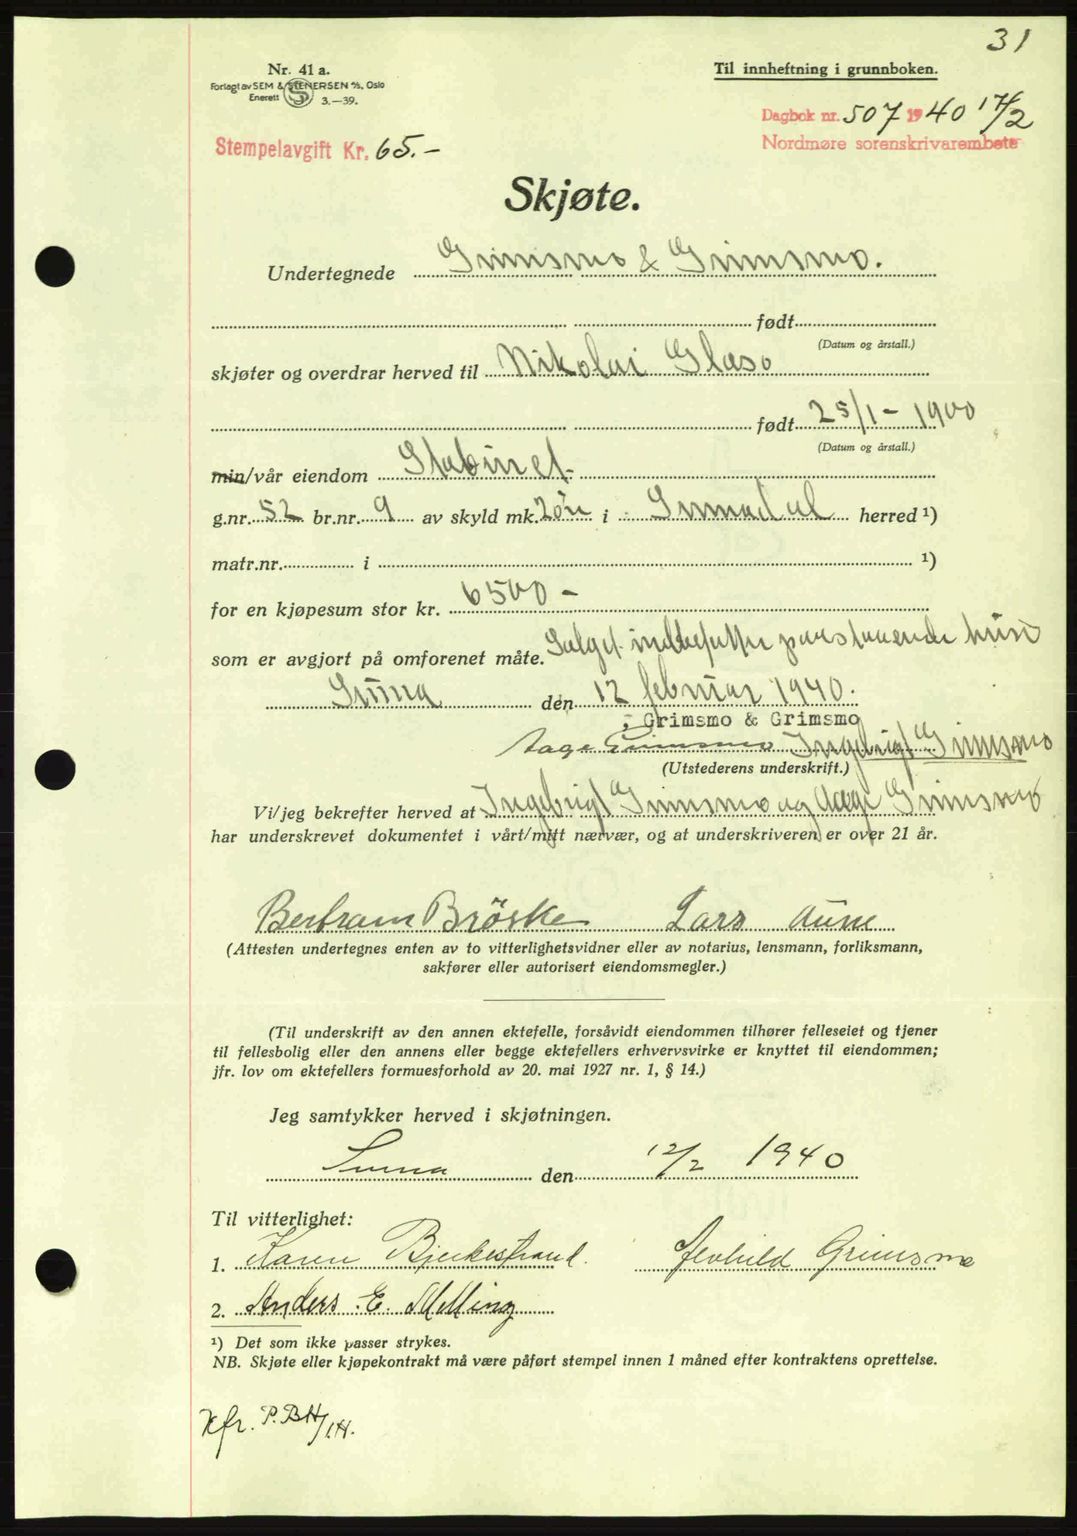 31
Nr. 41 a.
Forlagt av SEM & STENERSEN A/S, Oslo
Enerett S 3.—39.
Til innheftning i grunnboken.
Dagbok nr. 507 1940 17/2
Nordmøre sorenskrivarembete
Stempelavgift Kr. 65.-
Skjøte.
Undertegnede Grimsmo & Grimsmo.
født
(Datum og årstall.)
skjøter og overdrar herved til Nikolai Glæso
født 25/1 - 1900
(Datum og årstall.)
min/vår eiendom
g.nr. 52 br.nr. 9 av skyld mk. 2 øre i Sunndal herred ¹)
matr.nr. i ¹)
for en kjøpesum stor kr. 6500 -
som er avgjort på omforenet måte. Salget indbefatter paastaaende huse
Sunna den 12 februar 1940.
Grimsmo & Grimsmo
Aage Grimsmo Ingebrigt Grimsmo
(Utstederens underskrift.)
Vi/jeg bekrefter herved at Ingebrigt Grimsmo og Aage Grimsmo
har underskrevet dokumentet i vårt/mitt nærvær, og at underskriveren er over 21 år.
Bertram Brøske Lars Aune
(Attesten undertegnes enten av to vitterlighetsvidner eller av notarius, lensmann, forliksmann,
sakfører eller autorisert eiendomsmegler.)
(Til underskrift av den annen ektefelle, forsåvidt eiendommen tilhører felleseiet og tjener
til fellesbolig eller den annens eller begge ektefellers erhvervsvirke er knyttet til eiendommen;
jfr. lov om ektefellers formuesforhold av 20. mai 1927 nr. 1, § 14.)
Jeg samtykker herved i skjøtningen.
Sunna den 12/2 1940
Til vitterlighet:
1. Karen Bjerkestrand. Grimsmo
2. Anders E. Melling
¹) Det som ikke passer strykes.
NB. Skjøte eller kjøpekontrakt må være påført stempel innen 1 måned efter kontraktens oprettelse.
Kfr. P.BH/I.H.